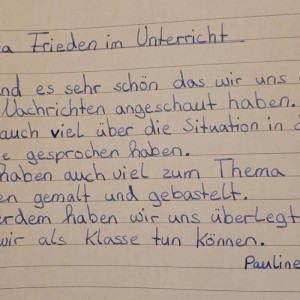 Frieden im Unterricht
es sehr schön das wir uns
Nachrichten angeschaut haben.
auch viel über die Situation in
gesprochen haben.
haben auch viel zum Thema
gemalt und gebastelt.
haben wir uns überlegt
wir als Klasse tun können.
Pauline